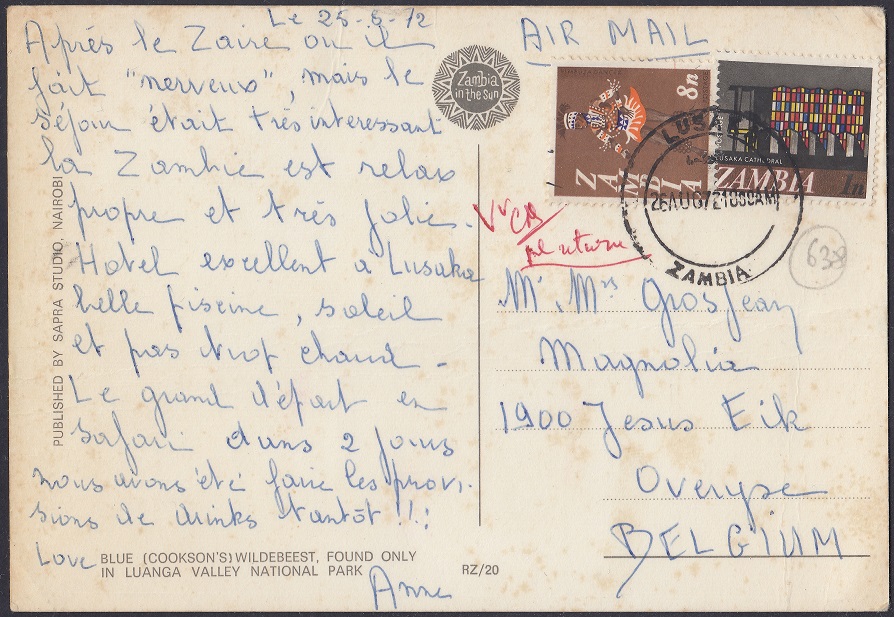 Le 25-8-72
Après le Zaire où il
fait "nerveux", mais le
séjour était très interessant
la Zambie est relax
propre et très jolie.
Hotel excellent a Lusaka
belle piscine, soleil
et pas trop chaud -
Le grand départ en
Safari dans 2 jours
nous avons été faire les provi-
sions de drinks tantôt !!!
Love
Anne
PUBLISHED BY SAPRA STUDIO, NAIROBI
BLUE (COOKSON'S) WILDEBEEST, FOUND ONLY
IN LUANGA VALLEY NATIONAL PARK
RZ/20
Zambia
in the Sun
AIR MAIL
8n
ZAMBIA
LUSAKA CATHEDRAL
ZAMBIA 1n
LUSAKA
26AUG72 1000AM
ZAMBIA
638
Mr. Mrs Grosjean
Magnolia
1900 Jesus Eik
Overyse
BELGIUM